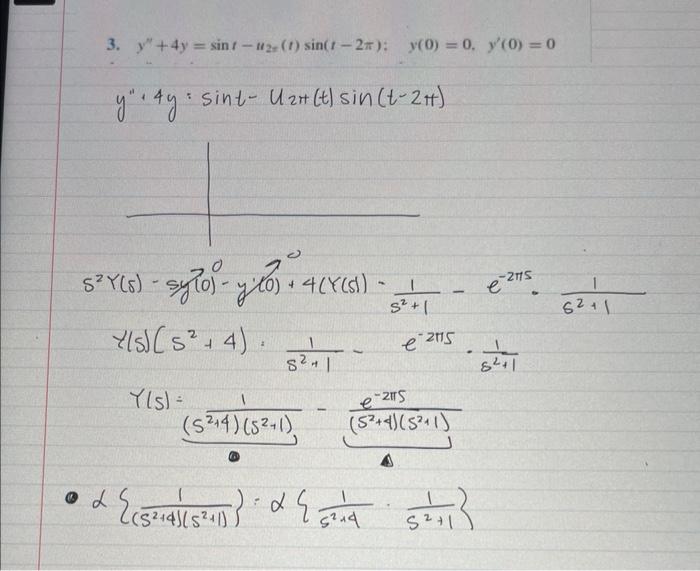 3. y″ + 4y = sin t − u₂π(t) sin(t − 2π); y(0) = 0, y′(0) = 0
y″ + 4y = sint − U2π(t) sin(t−2π)
0 0
S²Y(s) − sy(0) − y'(0) + 4(Y(s)) = 1/(s²+1) − e^(−2πs) · 1/(s²+1)
Y(s)(s²+4) = 1/(s²+1) − e^(−2πs) · 1/(s²+1)
Y(s) = 1/((s²+4)(s²+1)) − e^(−2πs)/((s²+4)(s²+1))
ℒ{1/((s²+4)(s²+1))} = ℒ{1/(s²+4) · 1/(s²+1)}